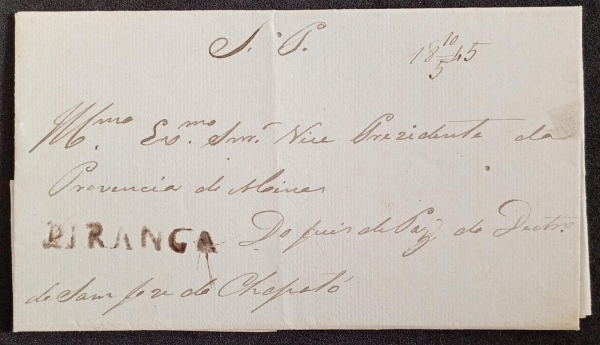 S. P. 18 10/5 45
Illmo Exmo Snr. Vice Prezidente da
Provencia de Minas
PIRANGA Do Juis de Paz do Destro.
de Sam Joze do Chopotó